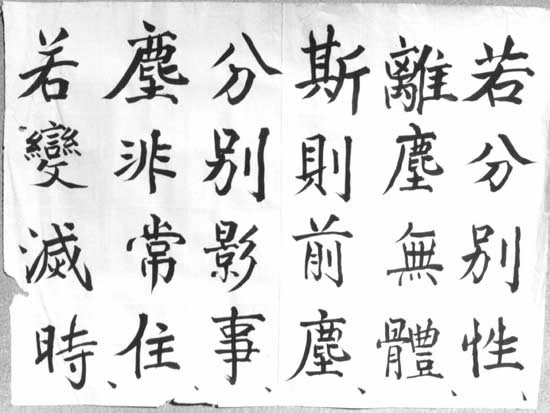 若分別性、
離塵無體、
斯則前塵
分別影事、
塵非常住、
若變滅時、